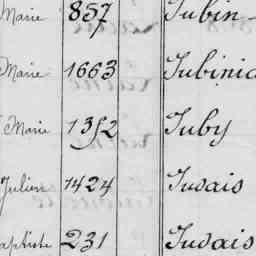 Marie 857 Jubin
Marie 1663
Marie 1352 Juby
Julien 1424 Judais
aptiste 231 Judais